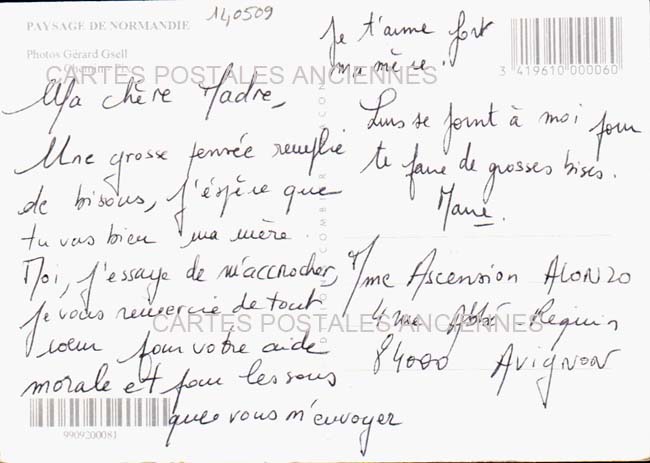 PAYSAGE DE NORMANDIE
140509
Photos Gérard Gsell
CARTES POSTALES ANCIENNES
3 419610 000060
Ma chère Madre,
Une grosse pensée remplie
de bisous, j'éspère que
tu vas bien ma mère.
Moi, j'essaye de m'accrocher,
je vous remercie de tout
coeur pour vôtre aide
morale et pour les sous
que vous m'envoyer
9909200081
Je t'aime fort
ma mère.
Luis se joint à moi pour
te faire de grosses bises.
Marie.
COMBIER
Mme Ascension ALONZO
4 rue Abbé Requin
84000 AVIGNON
CARTES POSTALES ANCIENNES